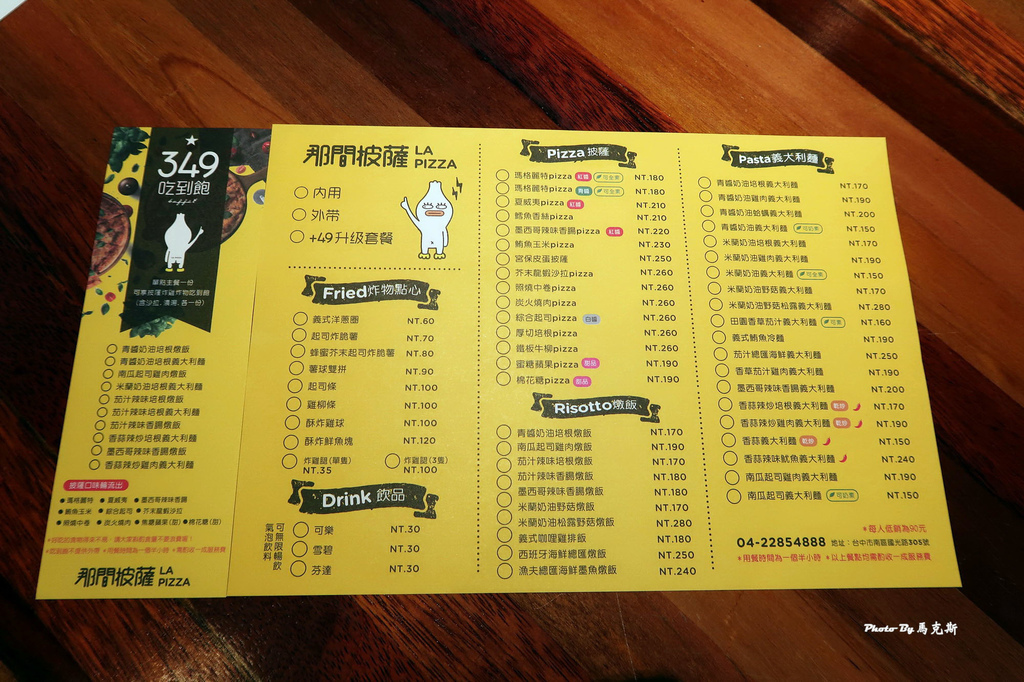 349
吃到飽
單點主餐一份
可享披薩炸雞炸物吃到飽
(含沙拉, 濃湯, 各一份)
青醬奶油培根燉飯
青醬奶油培根義大利麵
南瓜起司雞肉燉飯
米蘭奶油培根義大利麵
茄汁辣味培根燉飯
茄汁辣味培根義大利麵
茄汁辣味香腸燉飯
香蒜辣炒培根義大利麵
墨西哥辣味香腸燉飯
香蒜辣炒雞肉義大利麵
披薩口味輪流出
●瑪格麗特 ●夏威夷 ●墨西哥辣味香腸
●鮪魚玉米 ●綜合起司 ●芥末龍蝦沙拉
●照燒中卷 ●炭火燒肉 ●焦糖蘋果(甜) ●棉花糖(甜)
那間披薩 LA PIZZA
那間披薩 LA PIZZA
內用
外帶
+49升級套餐
Fried炸物點心
義式洋蔥圈 NT.60
起司炸脆薯 NT.70
蜂蜜芥末起司炸脆薯 NT.80
薯球雙拼 NT.90
起司條 NT.100
雞柳條 NT.100
酥炸雞球 NT.100
酥炸鮮魚塊 NT.120
炸雞腿(單隻) NT.35
炸雞腿(3隻) NT.100
Drink 飲品
可無限暢飲
氣泡飲料
可樂 NT.30
雪碧 NT.30
芬達 NT.30
Pizza披薩
瑪格麗特pizza 紅醬 可全素 NT.180
瑪格麗特pizza 青醬 可全素 NT.180
夏威夷pizza 紅醬 NT.210
鱈魚香絲pizza NT.210
墨西哥辣味香腸pizza 紅醬 NT.220
鮪魚玉米pizza NT.230
宮保皮蛋披薩 NT.250
芥末龍蝦沙拉pizza NT.260
照燒中卷pizza NT.260
炭火燒肉pizza NT.260
綜合起司pizza 白醬 NT.260
厚切培根pizza NT.260
鐵板牛柳pizza NT.260
蜜糖蘋果pizza 甜品 NT.190
棉花糖pizza 甜品 NT.190
Risotto燉飯
青醬奶油培根燉飯 NT.170
南瓜起司雞肉燉飯 NT.190
茄汁辣味培根燉飯 NT.170
茄汁辣味香腸燉飯 NT.180
墨西哥辣味香腸燉飯 NT.180
米蘭奶油野菇燉飯 NT.170
米蘭奶油松露野菇燉飯 NT.280
義式咖哩雞排飯 NT.180
西班牙海鮮總匯燉飯 NT.250
漁夫總匯海鮮墨魚燉飯 NT.240
Pasta義大利麵
青醬奶油培根義大利麵 NT.170
青醬奶油雞肉義大利麵 NT.190
青醬奶油蛤蠣義大利麵 NT.200
青醬奶油義大利麵 可奶素 NT.150
米蘭奶油培根義大利麵 NT.170
米蘭奶油雞肉義大利麵 NT.190
米蘭奶油義大利麵 可全素 NT.150
米蘭奶油野菇義大利麵 NT.170
米蘭奶油野菇松露義大利麵 NT.280
田園香草茄汁義大利麵 可素 NT.160
義式鮪魚冷麵 NT.190
茄汁總匯海鮮義大利麵 NT.250
香草茄汁雞肉義大利麵 NT.190
墨西哥辣味香腸義大利麵 NT.200
香蒜辣炒培根義大利麵 乾炒 NT.170
香蒜辣炒雞肉義大利麵 乾炒 NT.190
香蒜義大利麵 乾炒 NT.150
香蒜辣味魷魚義大利麵 NT.240
南瓜起司雞肉義大利麵 NT.190
南瓜起司義大利麵 可奶素 NT.150
*每人低銷為90元
04-22854888 地址:台中市南區國光路305號
*用餐時間為一個半小時 *以上餐點均需酌收一成服務費
Photo By 馬克斯